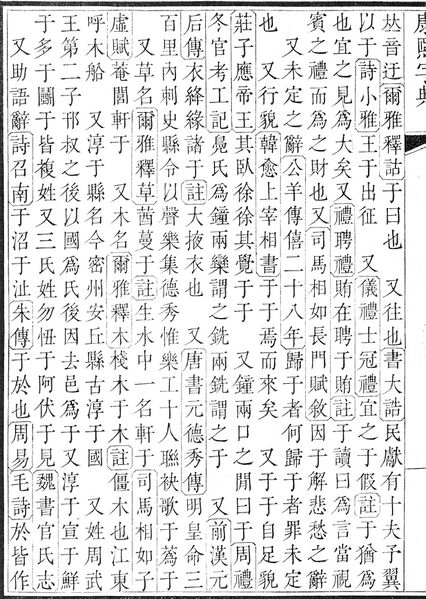 康熙字典
𠀤音迂爾雅釋詁于曰也　又往也書大誥民獻有十夫予翼
以于詩小雅王于出征　又儀禮士冠禮宜之于假註于猶爲
也宜之見爲大矣又禮聘禮賄在聘于賄註于讀曰爲言當視
賓之禮而爲之財也又司馬相如長門賦敘因于解悲愁之辭
又未定之辭公羊傳僖二十八年歸于者何歸于者罪未定
也　又行貌韓愈上宰相書于于焉而來矣　又于于自足貌
莊子應帝王其臥徐徐其覺于于　又鐘兩口之閒曰于周禮
冬官考工記鳧氏爲鐘兩欒謂之銑兩銑謂之于　又前漢元
后傳衣絳緣諸于註大掖衣也　又唐書元德秀傳明皇命三
百里內刺史縣令以聲樂集德秀惟樂工十人聯袂歌于蔿于
又草名爾雅釋草莤蔓于註生水中一名軒于司馬相如子
虛賦菴閭軒于　又木名爾雅釋木棧木于木註僵木也江東
呼木觡　又淳于縣名今密州安丘縣古淳于國　又姓周武
王第二子邘叔之後以國爲氏後因去邑爲于又淳于宣于鮮
于多于闟于皆複姓又三氏姓勿忸于阿伏于見魏書官氏志
又助語辭詩召南于沼于沚朱傳于於也周易毛詩於皆作